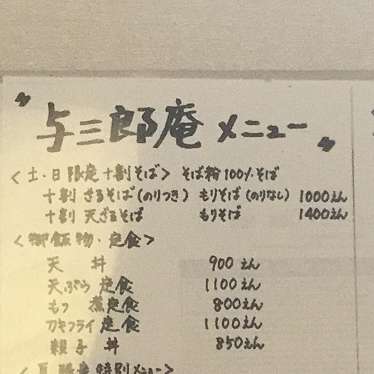 〝与三郎庵 メニュー〟
<土・日 限定 十割そば> そば粉100%そば
十割 ざるそば(のりつき) もりそば(のりなし) 1000えん
十割 天ざるそば もりそば 1400えん
<御飯物・定食>
天 丼 900えん
天ぷら 定食 1100えん
もつ 煮定食 800えん
カキフライ 定食 1100えん
親子 丼 850えん
<夏限定特別メニュー>